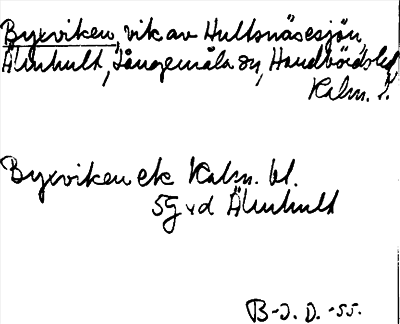 Byxviken, vik av Hultsnäsesjön,
Älmhult, Långemåla sn, Handbörds hd,
Kalm. l.
Byxviken ek Kalm. bl.
5G vd Älmhult
B-J. D. -55.